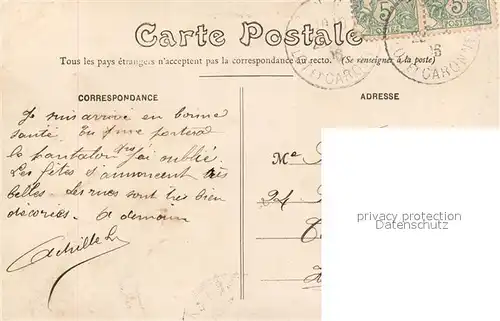 Carte Postale
Tous les pays étrangers n'acceptent pas la correspondance au recto. (Se renseigner à la poste)
CORRESPONDANCE
Je suis arrivé en bonne
santé. Tu me porteras
le pantalon gris j'ai oublié.
Les fêtes s'annoncent très
belles. Les rues sont très bien
décorées. A demain
Achille L
ADRESSE
Me
24
privacy protection
Datenschutz
5 5
LOT ET GARONNE